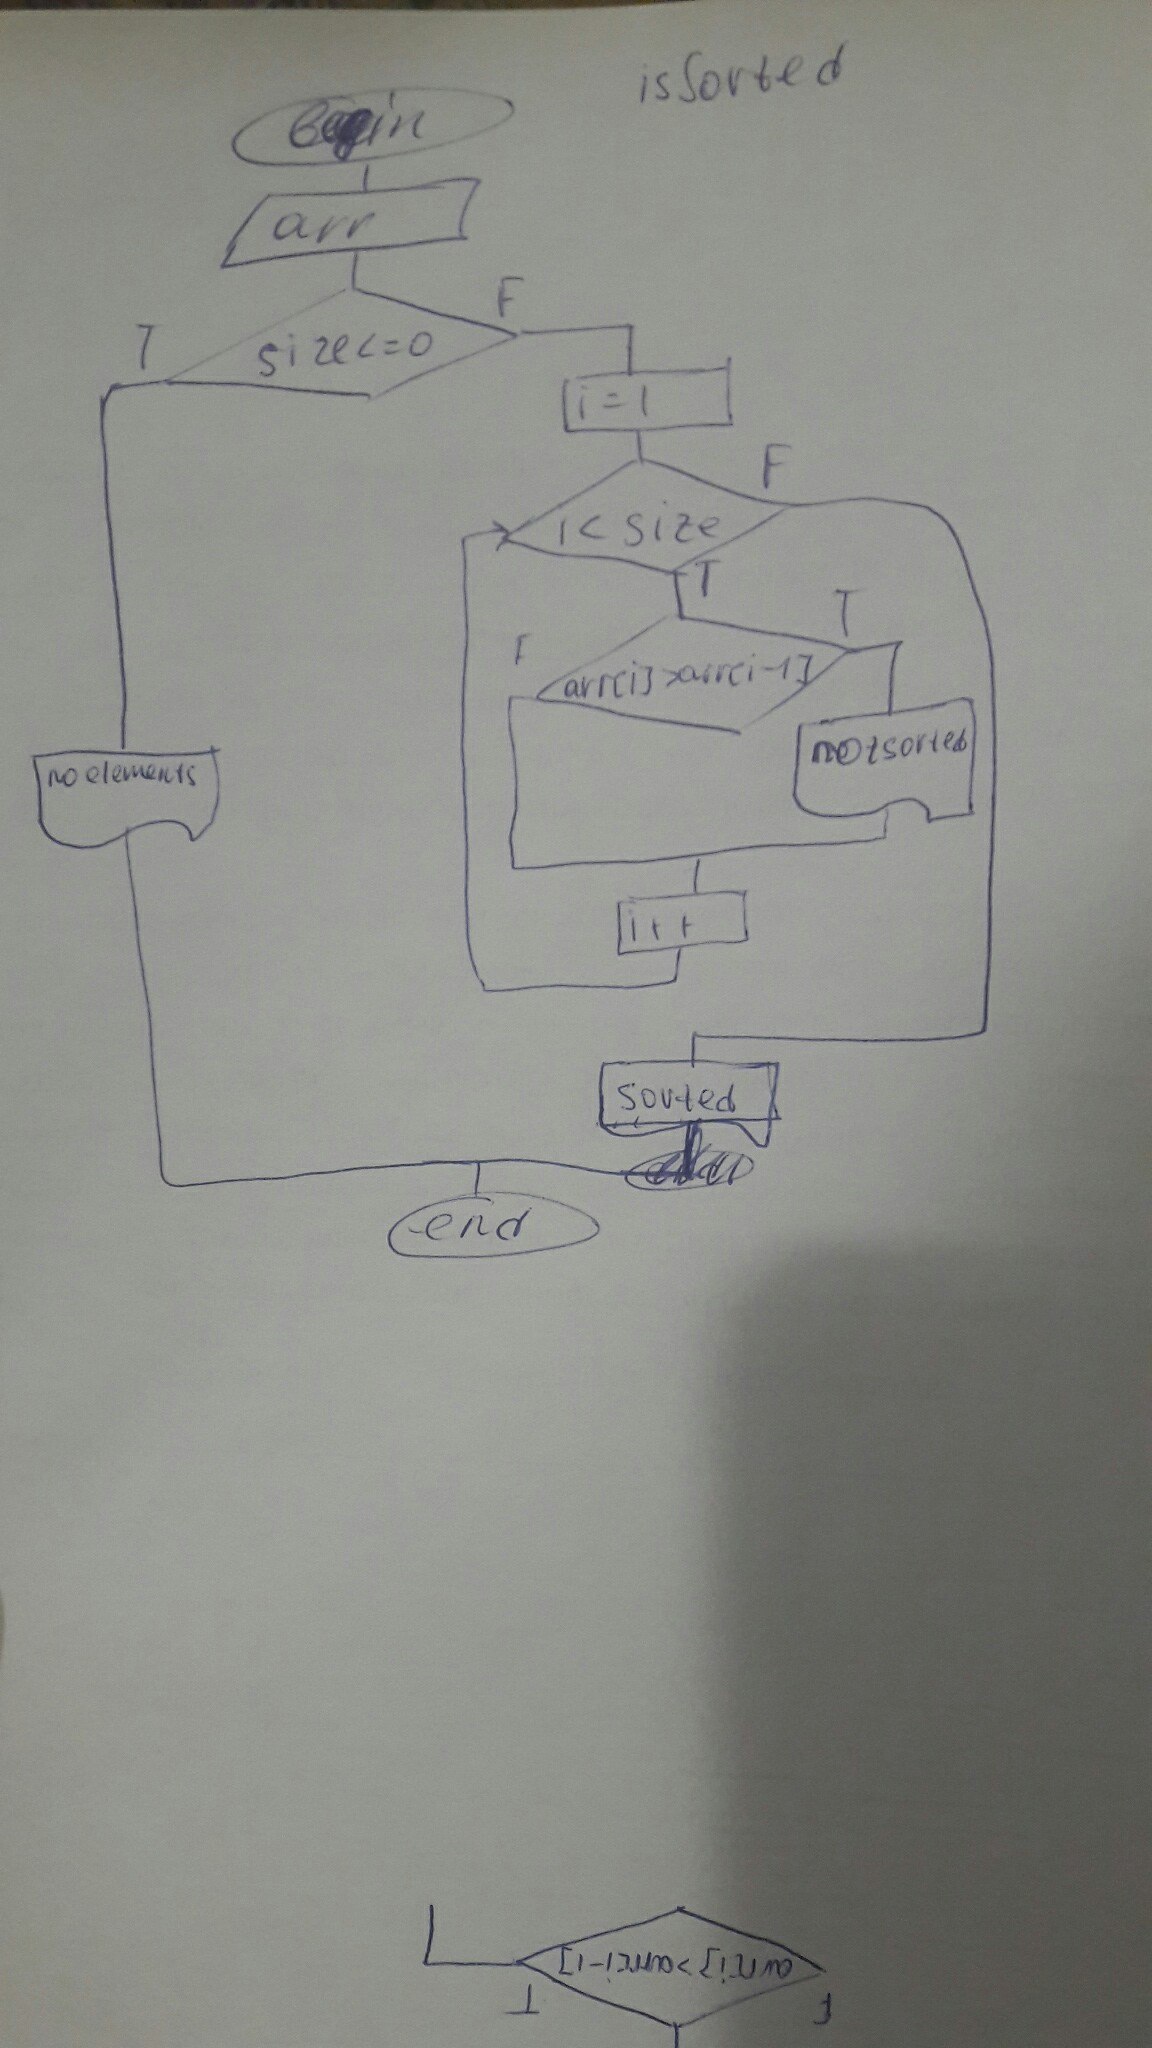 isSorted
Begin
arr
T
F
size<=0
i=1
F
i< size
T
T
F
arr[i]>arr[i-1]
notsorted
no elements
i++
Sorted
end
arr[i]>arr[i-1]
T
F